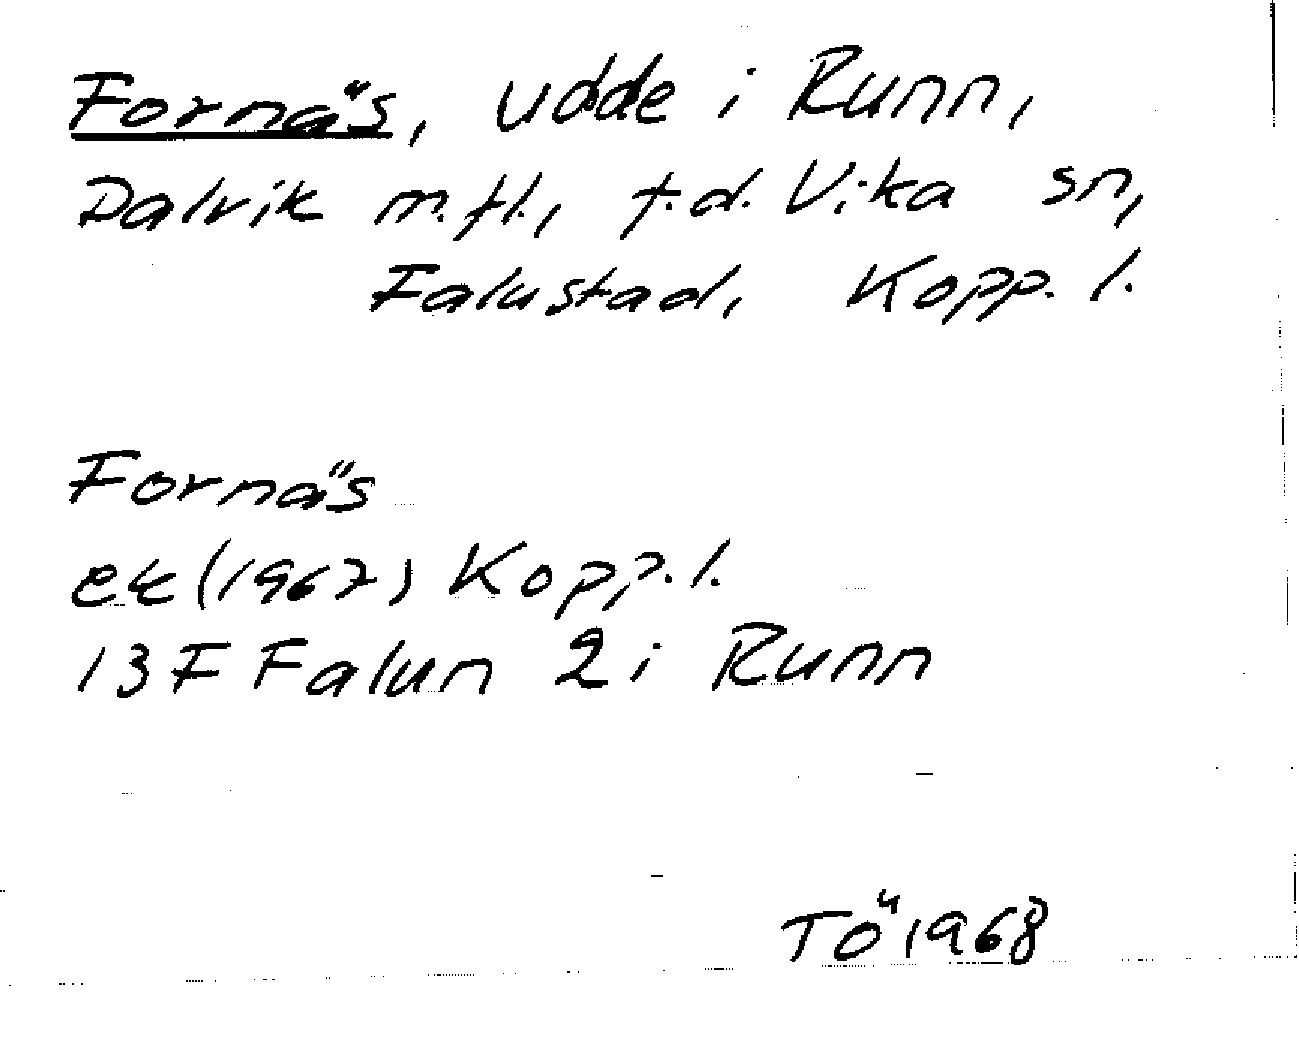 Fornäs, udde i Runn,
Dalvik m.fl., f.d. Vika sn,
Falu stad, Kopp. l.
Fornäs
ek (1967) Kopp. l.
13F Falun 2 i Runn
TÖ 1968